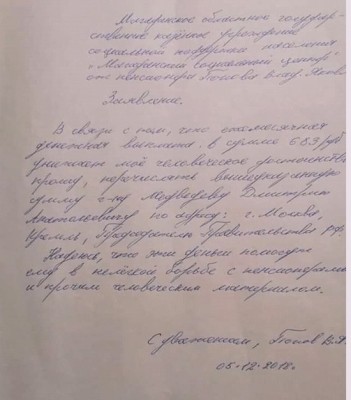 Магаданское областное государ-
ственное казённое учреждение
социальной поддержки населения
"Магаданский социальный центр"
от пенсионера Попова Влад.
Заявление.
В связи с тем, что ежемесячная
денежная выплата в сумме 689 руб
унижает моё человеческое достоинство
прошу, перечислять вышеуказанную
сумму г-ну Медведеву Дмитрию
Анатольевичу по адресу: г. Москва,
Кремль, Председателю Правительства РФ.
Надеюсь, что эти деньги помогут
ему в нелёгкой борьбе с пенсионерами
и прочим человеческим материалом.
С уважением, Попов В.Я.
05-12-2018г.